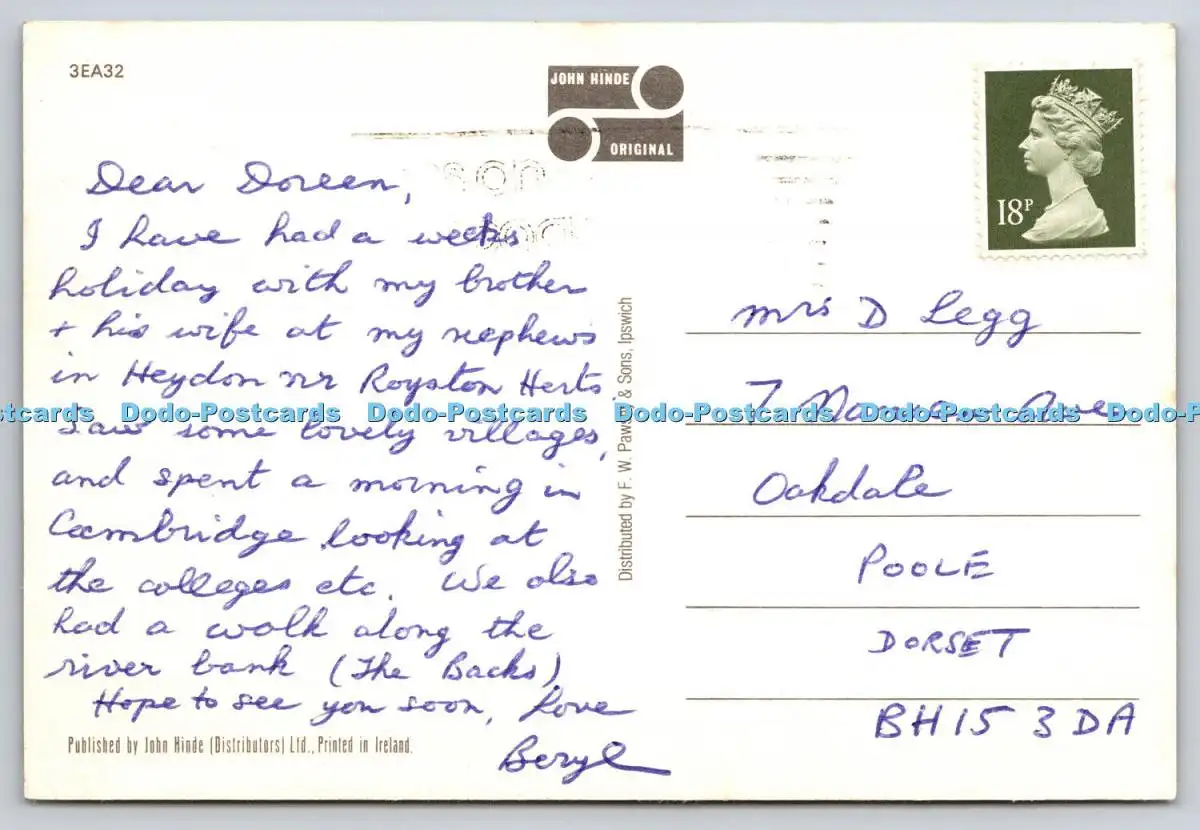 3EA32
JOHN HINDE
ORIGINAL
18P
Dear Doreen,
I have had a weeks
holiday with my brother
+ his wife at my nephews
in Heydon nr Royston Herts
Saw some lovely villages,
and spent a morning in
Cambridge looking at
the colleges etc. We also
had a walk along the
river bank (The Backs)
Hope to see you soon, Love
Beryl
Published by John Hinde (Distributors) Ltd., Printed in Ireland.
Distributed by F. W. Pawsey & Sons, Ipswich
Mrs D Legg
7 Ave
Oakdale
POOLE
DORSET
BH15 3DA
Dodo-Postcards Dodo-Postcards Dodo-Postcards Dodo-Postcards